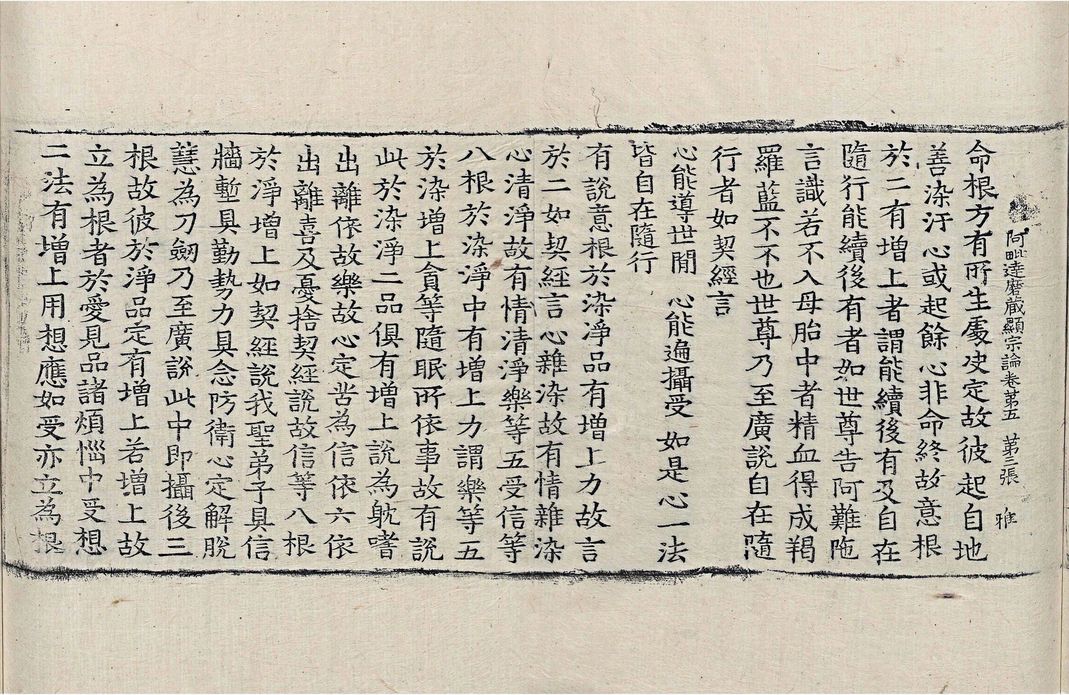 阿毗達磨藏顯宗論卷第五 第三張 雅
命根方有所生處决定故彼起自地
善染汙心或起餘心非命終故意根
於二有增上者謂能續後有及自在
隨行能續後有者如世尊告阿難陁
言識若不入母胎中者精血得成羯
羅藍不不也世尊乃至廣說自在隨
行者如契經言
心能導世閒 心能遍攝受 如是心一法
皆自在隨行
有說意根於染淨品有增上力故言
於二如契經言心雜染故有情雜染
心清淨故有情清淨樂等五受信等
八根於染淨中有增上力謂樂等五
於染增上貪等隨眠所依事故有說
此於染淨二品俱有增上說為躭嗜
出離依故樂故心定苦為信依六依
出離喜及憂捨契經說故信等八根
於淨增上如契經說我聖弟子具信
牆塹具勤勢力具念防衛心定解脫
慧為刀劒乃至廣說此中即攝後三
根故彼於淨品定有增上若增上故
立為根者於愛見品諸煩惱中受想
二法有增上用想應如受亦立為根